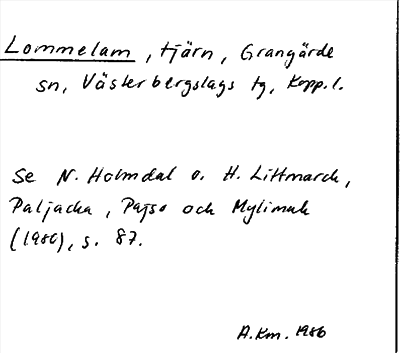 Lommelam, tjärn, Grangärde
sn, Västerbergslags tg, Kopp. l.
Se N. Holmdal o. H. Littmarck,
Paljacka, Pajso och Mylimak
(1980), s. 87.
A. Km. 1986